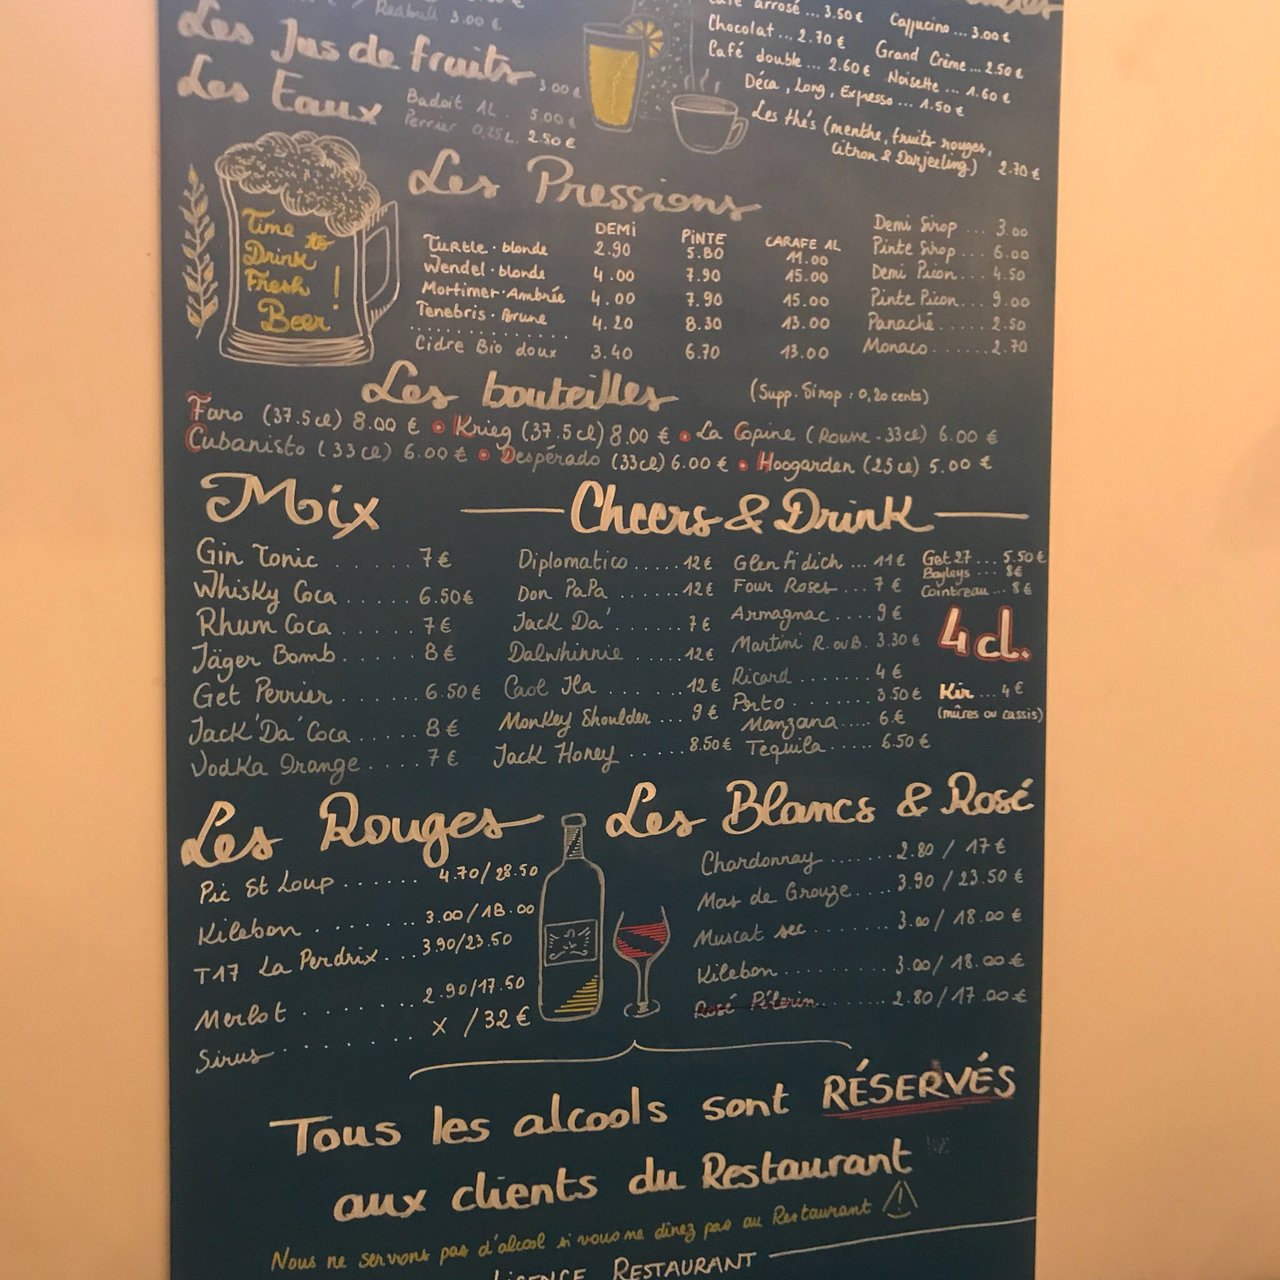 Redbull 3.00 €
Les Jus de fruits 3.00 €
Les Eaux
Badoit 1L. 5.00 €
Perrier 0,25 L. 2.50 €
Café arrosé ... 3.50 €
Chocolat ... 2.70 €
Café double ... 2.60 €
Cappucino ... 3.00 €
Grand Crème ... 2.50 €
Noisette ... 1.60 €
Déca, Long, Expresso ... 1.50 €
Les thés (menthe, fruits rouges,
citron & Darjeeling) 2.70 €
Time to
Drink
Fresh !
Beer
Les Pressions
DEMI PiNTE CARAFE 1L
Turtle · blonde 2.90 5.80 11.00
Wendel · blonde 4.00 7.90 15.00
Mortimer · Ambrée 4.00 7.90 15.00
Tenebris · Brune 4.20 8.30 13.00
Cidre Bio doux 3.40 6.70 13.00
Demi Sirop ... 3.00
Pinte Sirop ... 6.00
Demi Picon ... 4.50
Pinte Picon ... 9.00
Panaché ..... 2.50
Monaco ....... 2.70
Les bouteilles (Supp. Sirop : 0,20 cents)
Faro (37.5cl) 8.00 € • Krieg (37.5cl) 8.00 € • La Copine (Rousse - 33cl) 6.00 €
Cubanisto (33cl) 6.00 € • Despérado (33cl) 6.00 € • Hoogarden (25cl) 5.00 €
Mix
Gin Tonic 7 €
Whisky Coca ...... 6.50 €
Rhum Coca ....... 7 €
Jäger Bomb ...... 8 €
Get Perrier ....... 6.50 €
Jack'Da'Coca ..... 8 €
Vodka Orange ..... 7 €
Cheers & Drink
Diplomatico ...... 12 €
Don PaPa ........ 12 €
Jack Da' ....... 7 €
Dalwhinnie ...... 12 €
Caol Ila ........ 12 €
Monkey Shoulder ... 9 €
Jack Honey ...... 8.50 €
Glenfidich ... 11 €
Four Roses ... 7 €
Armagnac ... 9 €
Martini R. ou B. 3.30 €
Ricard ....... 4 €
Porto ........ 3.50 €
Manzana ..... 6 €
Tequila ...... 6.50 €
Get 27 ... 5.50 €
Bayleys ... 8 €
Cointreau ... 8 €
4 cl.
Kir ... 4 €
(mûres ou cassis)
Les Rouges
Pic St Loup ...... 4.70/28.50
Kilebon ......... 3.00/18.00
T17 La Perdrix ... 3.90/23.50
Merlot ........ 2.90/17.50
Sirus ......... x / 32 €
Les Blancs & Rosé
Chardonnay ....... 2.80 / 17 €
Mas de Grouze .... 3.90 / 23.50 €
Muscat sec ....... 3.00 / 18.00 €
Kilebon .......... 3.00 / 18.00 €
Rosé Pélerin ..... 2.80 / 17.00 €
Tous les alcools sont RÉSERVÉS
aux clients du Restaurant
Nous ne servons pas d'alcool si vous ne dînez pas au Restaurant !
LICENCE RESTAURANT